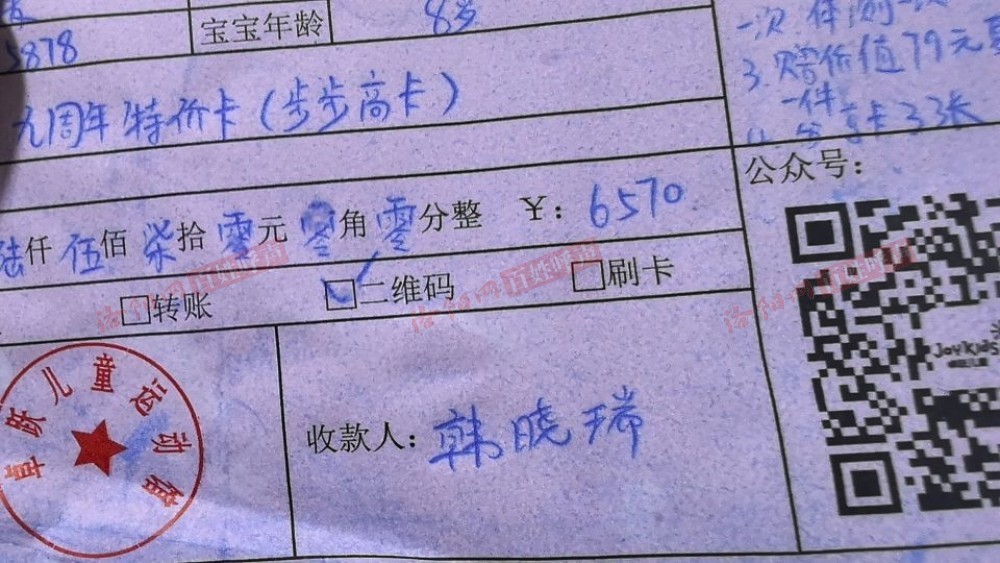 5878 宝宝年龄 8岁
一次 体测一次
3. 赠价值79元
一件
卡33张
九周年特价卡(步步高卡)
公众号:
陆仟伍佰柒拾零元零角零分整 ¥: 6570
□转账 ☑二维码 □刷卡
卓跃儿童运动馆
收款人: 韩晓瑞
Joykids
百姓呼声